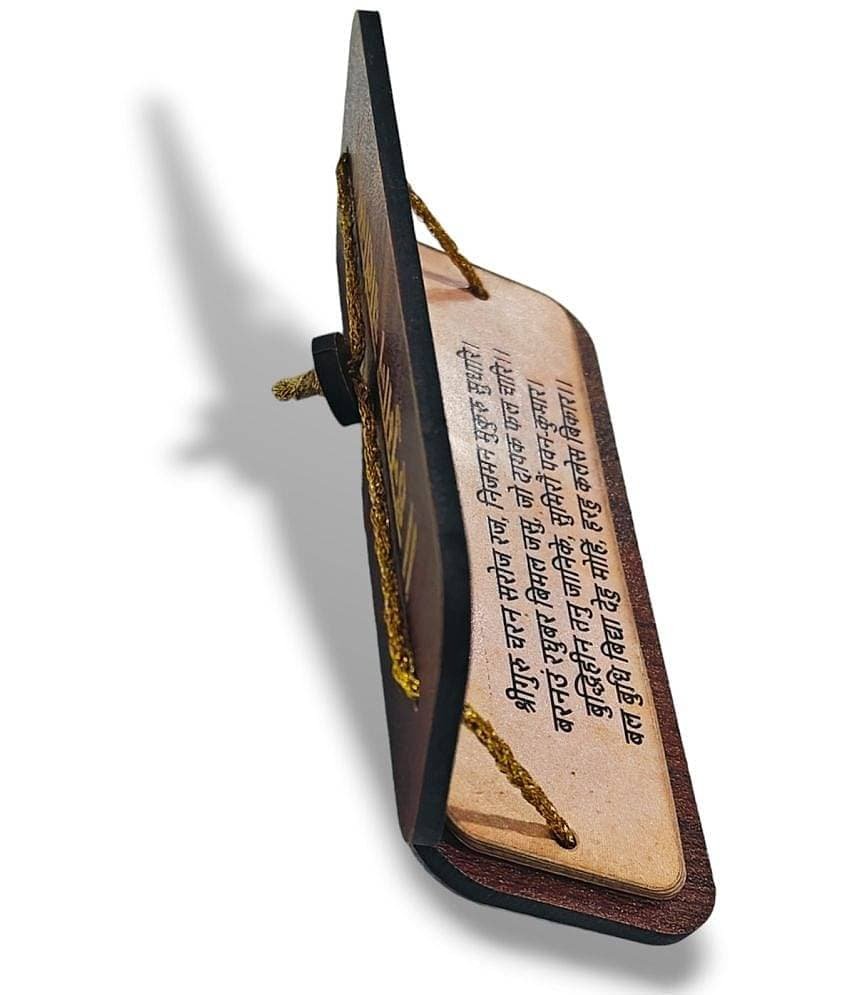 श्रीगुरु चरन सरोज रज, निजमन मुकुरु सुधारि।
बरनउं रघुबर बिमल जसु, जो दायक फल चारि।।
बुद्धिहीन तनु जानिके, सुमिरौं पवन-कुमार।
बल बुधि बिद्या देहु मोहिं, हरहु कलेस बिकार।।